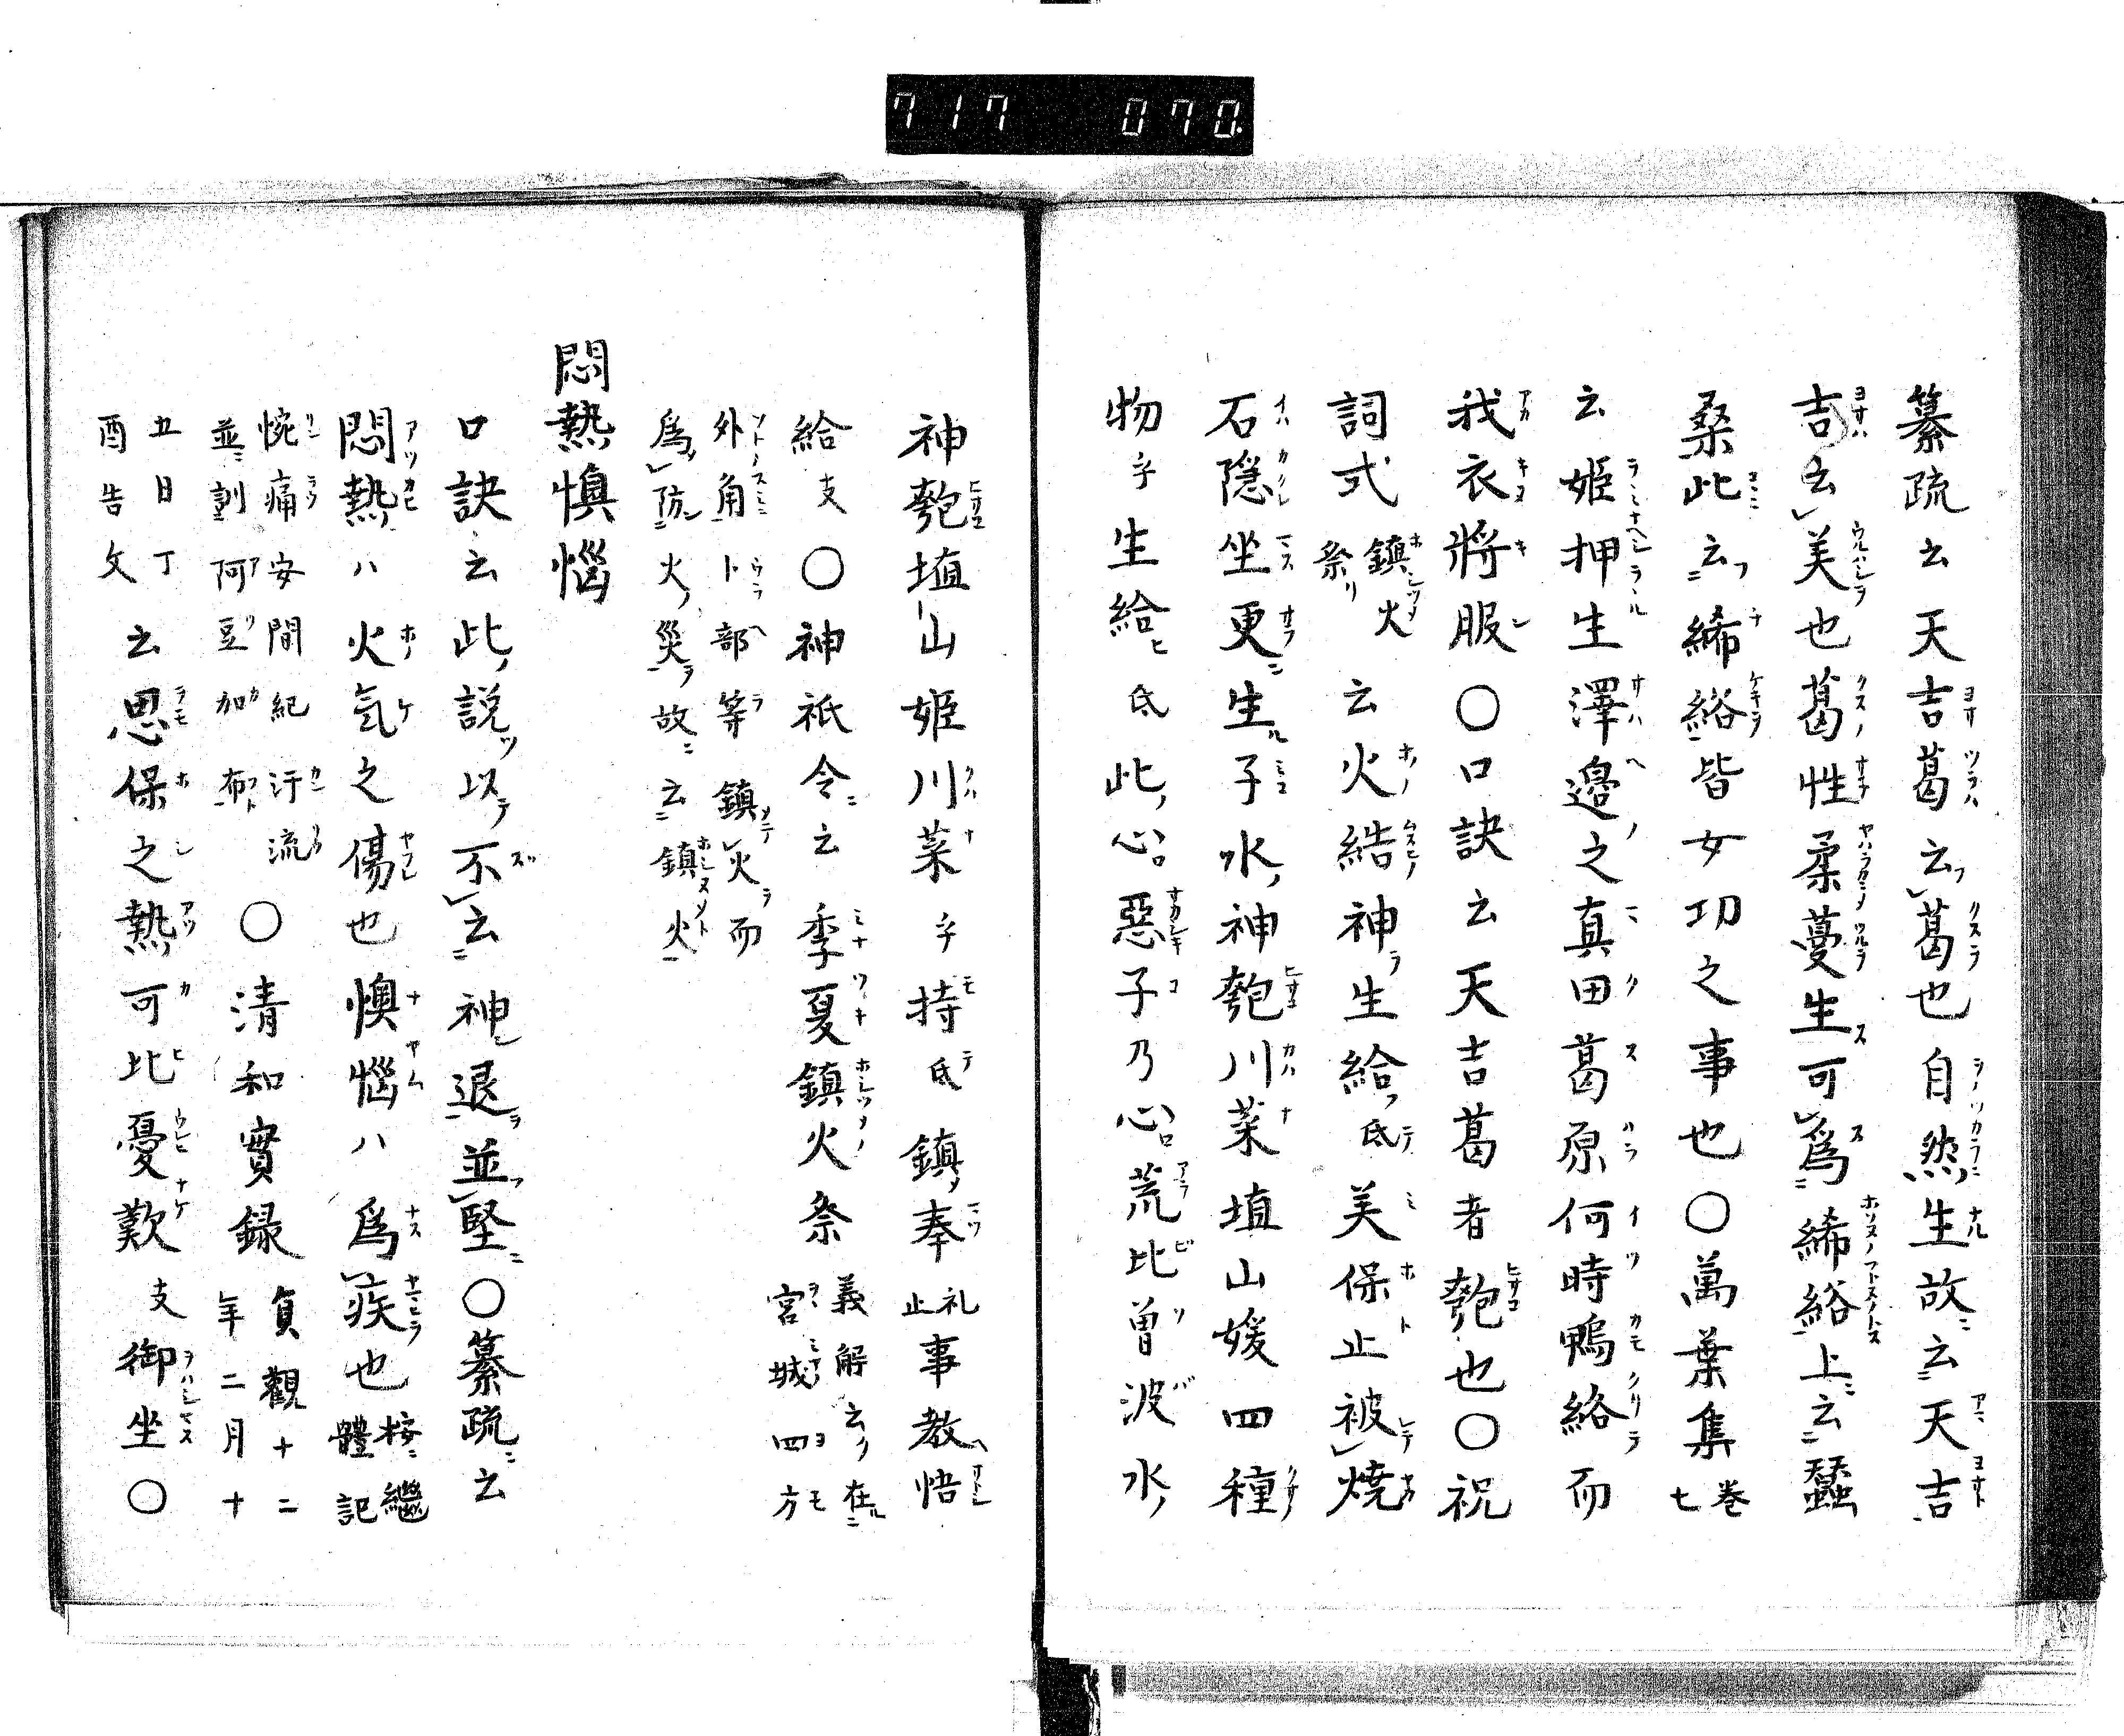 717 070
纂疏云天吉葛云葛也自然生故云天吉
吉云美也葛性柔蔓生可爲絺綌上云蠶
桑此云絺綌皆女功之事也〇萬葉集巻七
云姫押生澤邉之真田葛原何時鴨絡而
我衣將服〇口訣云天吉葛者匏也〇祝
詞式鎮火祭云火結神生給氐美保止被燒
石隱坐更生子水神匏川菜埴山媛四種
物乎生給氐此心惡子乃心荒比曽波水
神匏埴山姫川菜乎持氐鎮奉礼止事教悟
給支〇神祇令云季夏鎮火祭義解云在宮城四方
外角卜部等鎮火而
爲防火災故云鎮火
悶熱懊惱
口訣云此説以不云神退並堅〇纂疏云
悶熱ハ火気之傷也懊惱ハ爲疾也按繼體記
惋痛安閒紀汗流並訓阿豆加布〇清和實録貞觀十二年二月十
五日丁酉告文云思保之熱可比憂歎支御坐〇